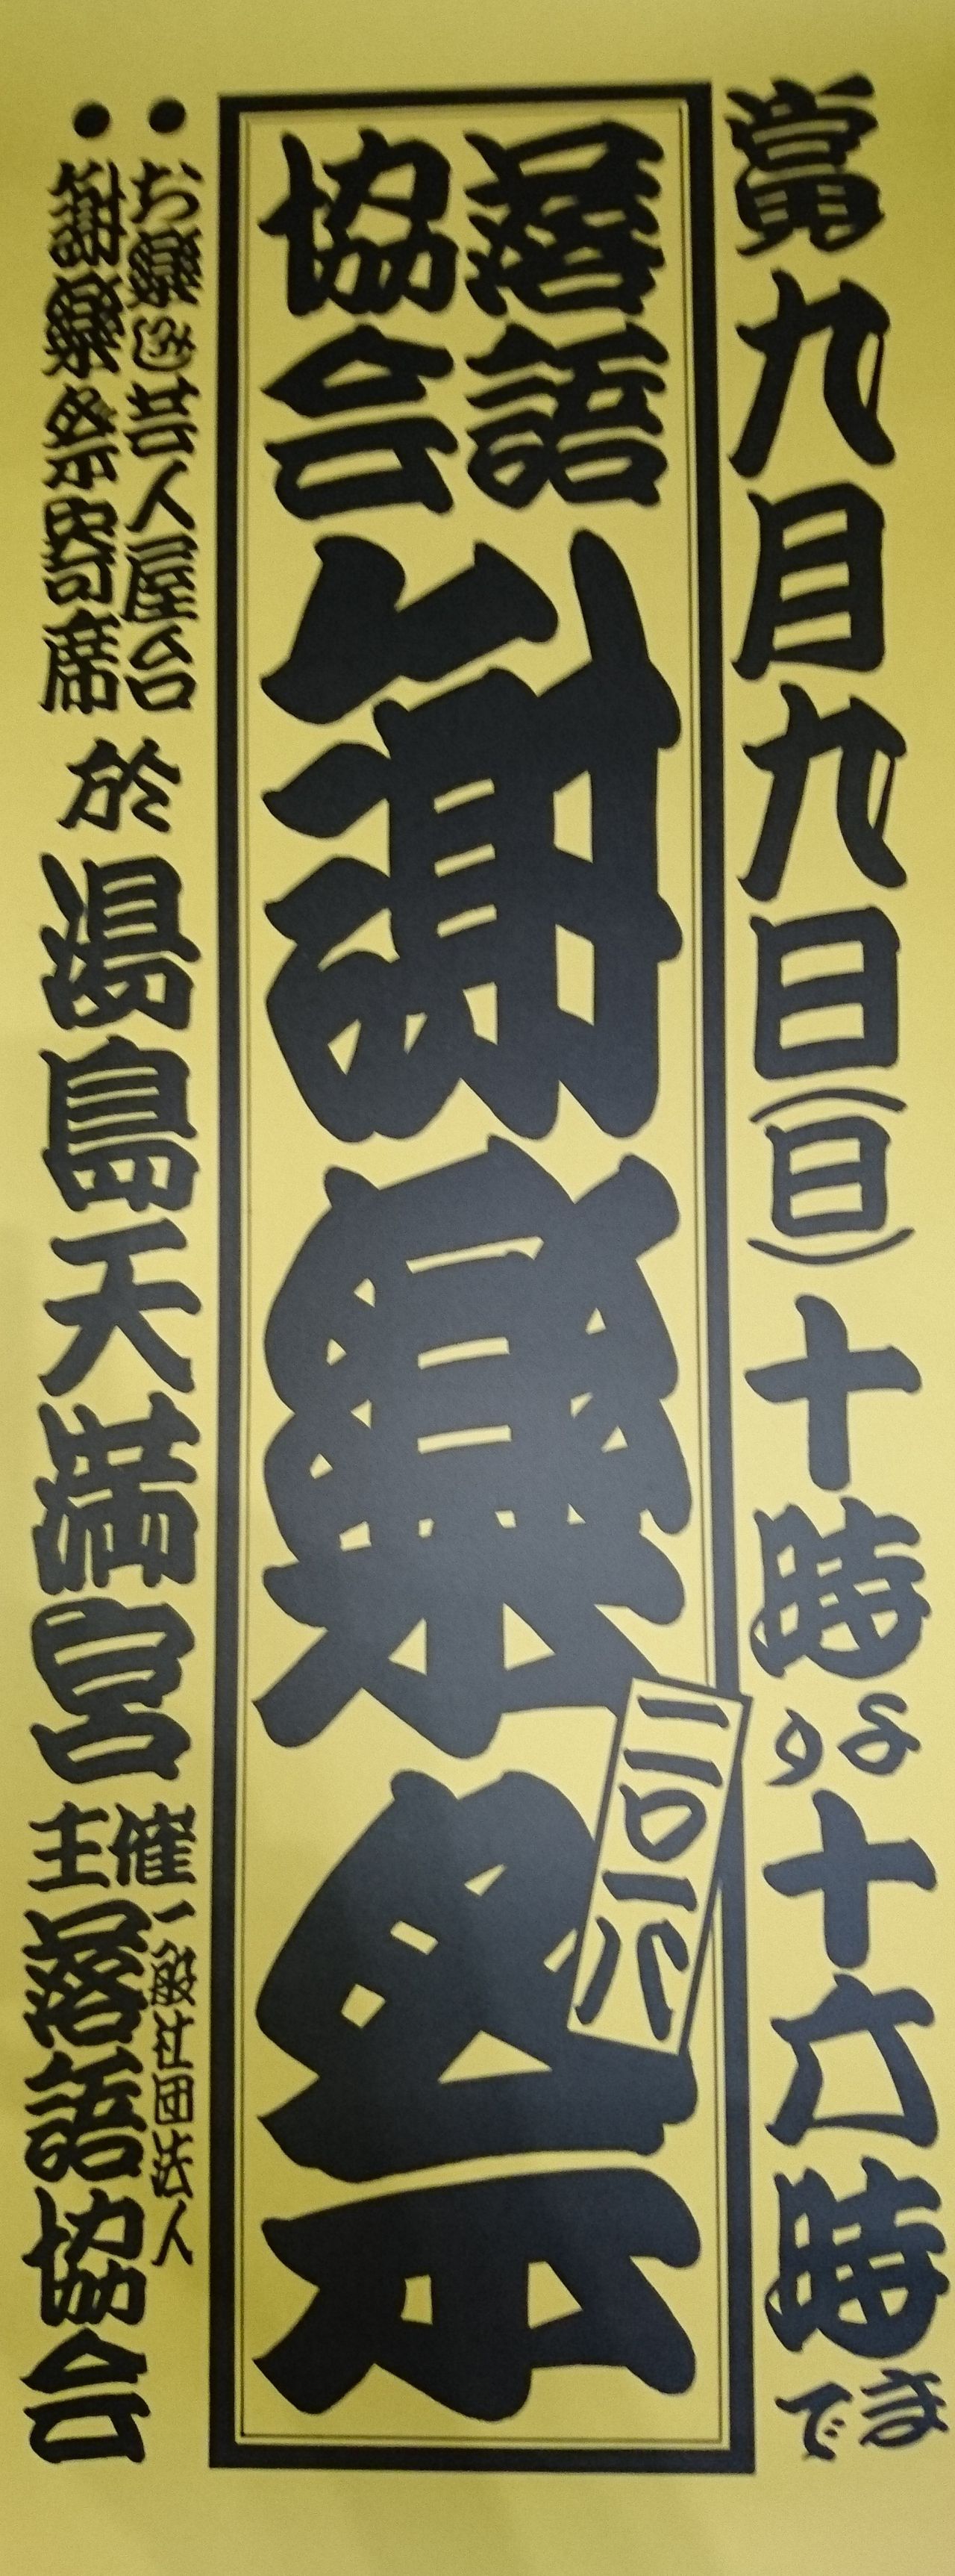 當九月九日(日)十時より十六時まで
落語協会
謝樂祭
二〇一八
・お樂しみ芸人屋台
・謝樂祭寄席
於湯島天満宮
主催
一般社団法人
落語協会